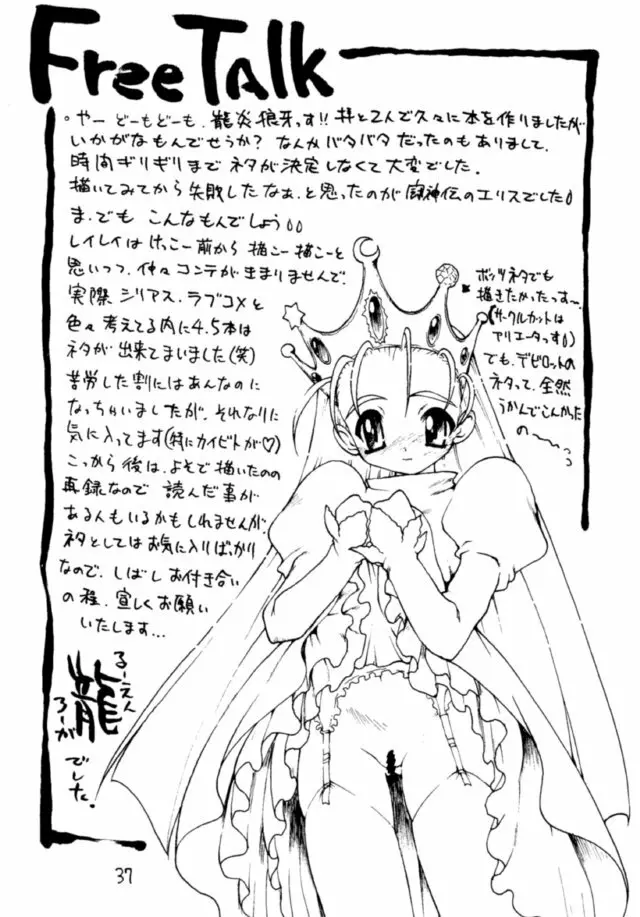 Free Talk
。やー どーもどーも、龍炎狼牙っす!! 拝と2人で久々に本を作りましたが
いかがなもんでせうか? なんかバタバタだったのもありまして、
時間ギリギリまで ネタが決定しなくて大変でした。
描いてみてから失敗したなぁ、と思ったのが 闘神伝のエリスでした
ま、でも こんなもんでしょう
レイレイは けっこー前から 描こー描こーと
思いつつ、仲々コンテがきまりませんで、
実際 シリアス、ラブコメと
色々考えてる内に 4、5本は
ネタが出来てまいました(笑)
苦労した割にはあんなのに
なっちゃいましたが、それなりに
気に入ってます(特にカイビトが♡)
こっから後は、よそで描いたの
再録なので 読んだ事が
ある人もいるかもしれませんが、
ネタとしてはお気に入りばっかり
なので、しばし お付き合い
の程、宜しくお願い
いたします…
るーえん
龍
ろーが
でした。
ボッツネタでも
描きたかったっすー
(サークルカットは
アリエータっす)
でも、デビロットの
ネタって、全然
うかんでこんかった
の〜〜っ
37